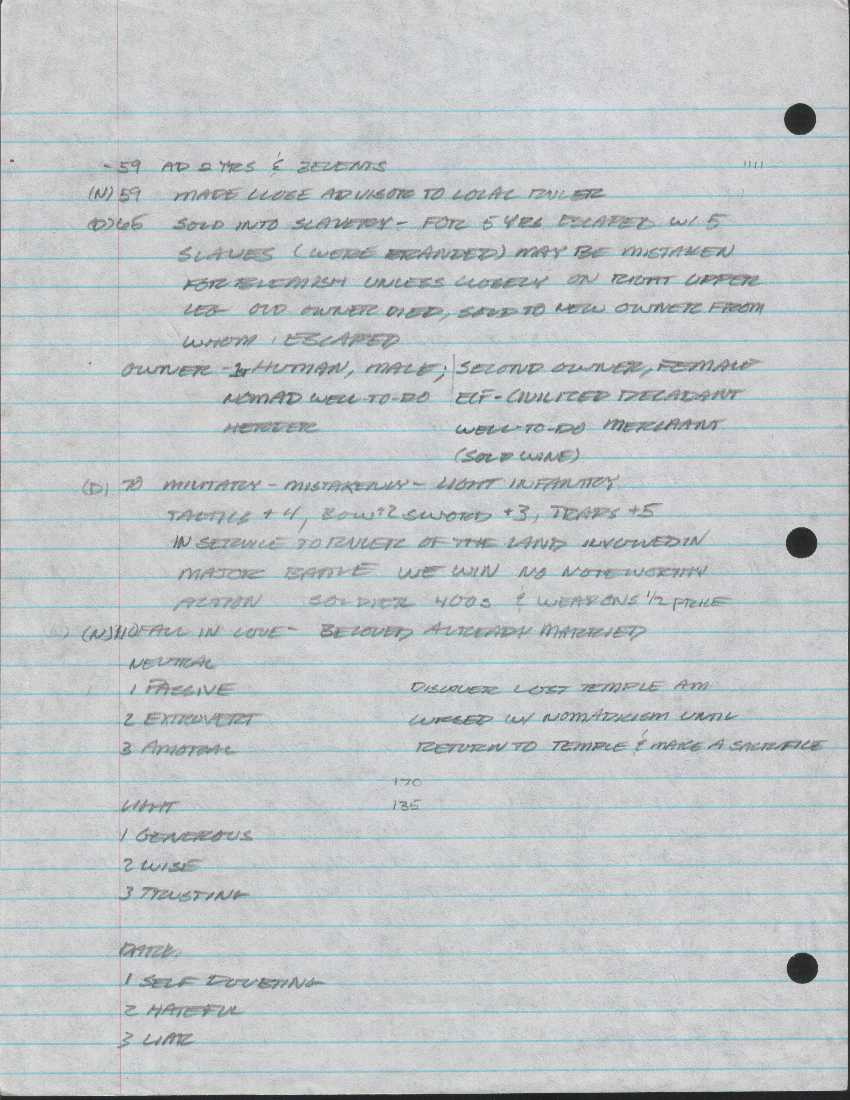 -59 AD 2 YRS & EVENTS
(N) 59 MADE CLOSE ADVISOR TO LOCAL RULER
(D) 65 SOLD INTO SLAVERY - FOR 5 YRS ESCAPED W/ 5
SLAVES (WERE BRANDED) MAY BE MISTAKEN
FOR BLEMISH UNLESS CLOSELY ON RIGHT UPPER
LEG OLD OWNER DIED, SOLD TO NEW OWNER FROM
WHOM I ESCAPED
OWNER - HUMAN, MALE; SECOND OWNER, FEMALE
NOMAD WELL-TO-DO ELF - CIVILIZED DECADANT
HERDER WELL-TO-DO MERCHANT
(SOLD WINE)
(D) 70 MILITARY - MISTAKENLY - LIGHT INFANTRY
TACTICS +4, BOW +2 SWORD +3, TRAPS +5
IN SERVICE TO RULER OF THE LAND INVOLVED IN
MAJOR BATTLE WE WIN NO NOTEWORTHY
ACTION SOLDIER 400S & WEAPONS 1/2 PRICE
(N) 110 FALL IN LOVE - BELOVED ALREADY MARRIED
NEUTRAL
1 PASSIVE DISCOVER LOST TEMPLE AM
2 EXTROVERT CURSED W/ NOMADICISM UNTIL
3 AMORAL RETURN TO TEMPLE & MAKE A SACRIFICE
170
LIGHT 135
1 GENEROUS
2 WISE
3 TRUSTING
DARK
1 SELF DOUBTING
2 HATEFUL
3 LIAR